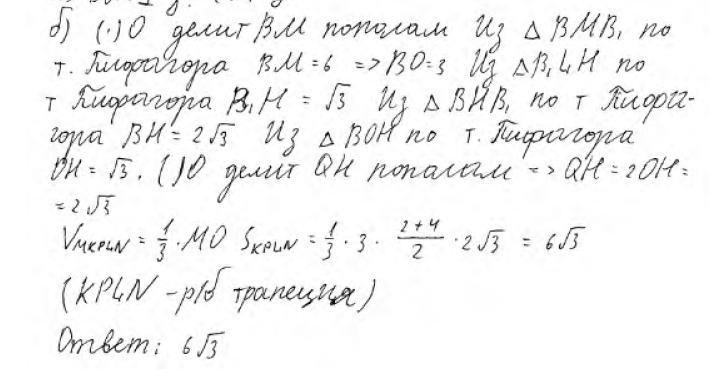 б) (·)O делит BM пополам Из △BMB₁ по
т. Пифагора BM=6 => BO=3 Из △B₁LH по
т Пифагора B₁H = √3 Из △BHB₁ по т Пифа-
гора BH = 2√3 Из △BOH по т. Пифагора
OH = √3. (·)O делит QH пополам => QH = 2OH =
= 2√3
V_MKPLN = 1/3 · MO S_KPLN = 1/3 · 3 · (2+4)/2 · 2√3 = 6√3
(KPLN - р/б трапеция)
Ответ: 6√3